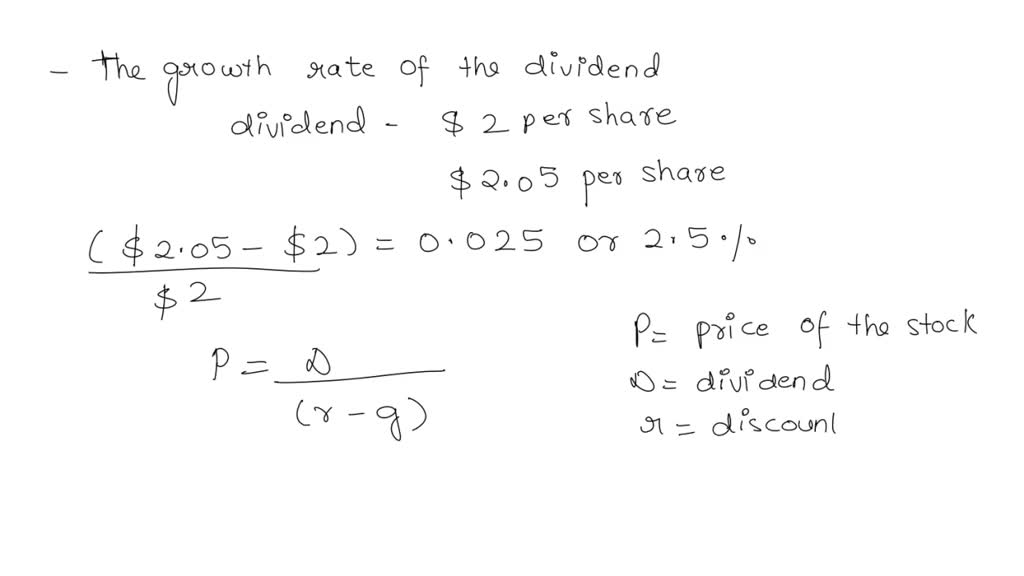 - The growth rate of the dividend
dividend - $ 2 per share
$2.05 per share
($2.05 - $2) = 0.025 or 2.5%
$2
P = D
(r - g)
P= price of the stock
D= dividend
r = discount